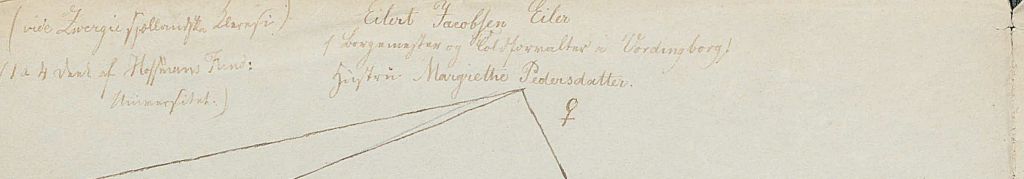 (vide Zwergii sjællandske Cleresi.)
(1 a 4 Deel af Hoffmans Fund:
Universitet.)
Eilert Jacobsen Eiler
(Borgemester og Toldforvalter i Vordingborg)
Hustru Margrethe Pedersdatter.
♀